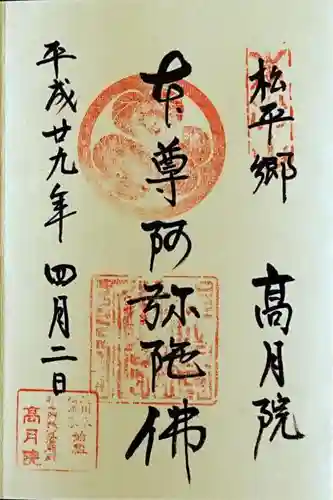 松平郷 高月院
本尊阿弥陀佛
平成廿九年 四月二日
高月院